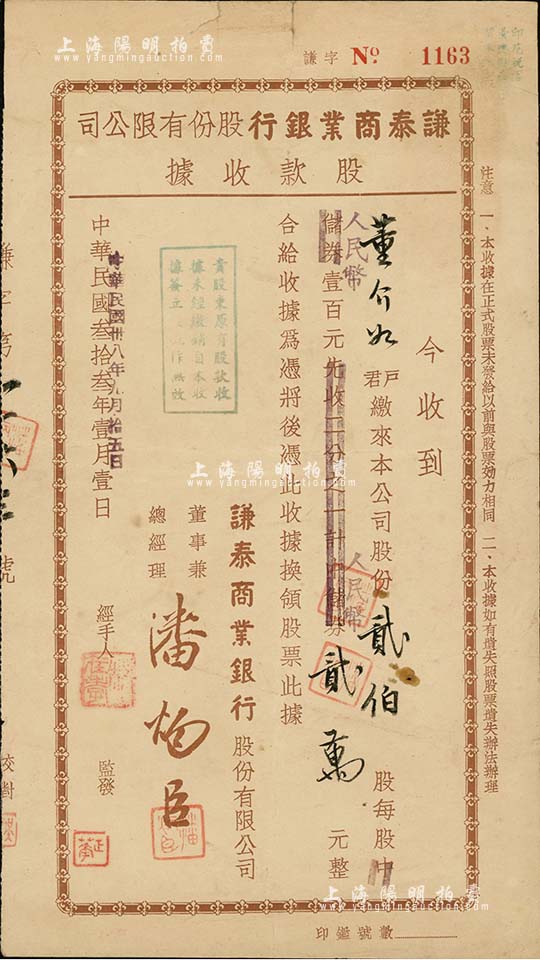 上海陽明拍賣
www.yangmingauction.com
謙字 No. 1163
謙泰商業銀行股份有限公司
股款收據
注意 一、本收據在正式股票未發給以前與股票効力相同 二、本收據如有遺失照股票遺失辦法辦理
今收到
董介如
戶君繳來本公司股份貳伯股每股中
人民幣
儲券壹百元先收二分之一計中儲券貳萬元整
人民幣
合給收據爲憑將後憑此收據換領股票此據
貴股東原有股款收
據未經繳銷自本收
謙泰商業銀行股份有限公司
董事兼總經理
潘炳臣
中華民國叁拾叁年壹月壹日
中華民國卅八年九月拾五日
經手人
監發
上海陽明拍賣
www.yangmingauction.com
謙字第
號
校對
印鑑號數
上海陽明拍賣
www.yangmingauction.com